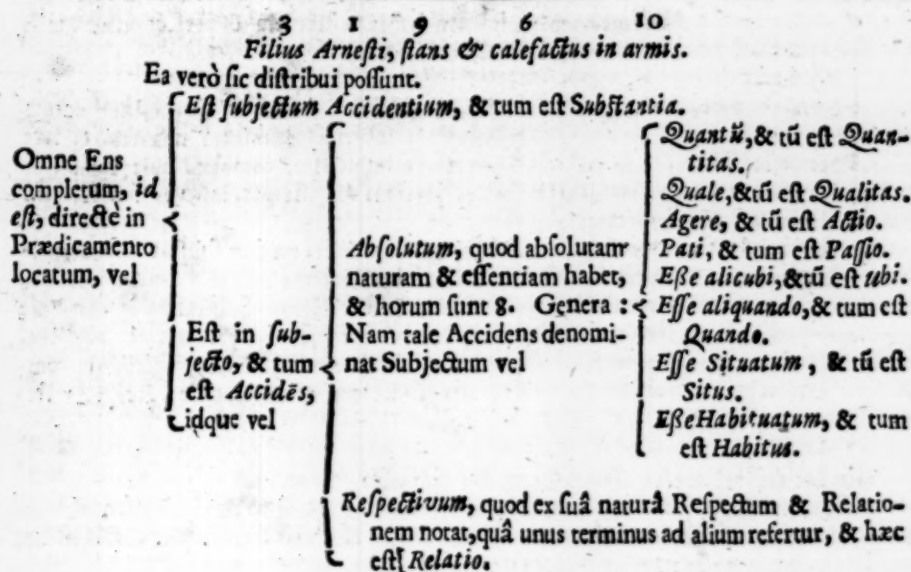 3 1 9 6 10
Filius Arnesti, ſtans & calefactus in armis.
Ea verò ſic diſtribui poſſunt.
Omne Ens
completum, id
eſt, directè in
Prædicamento
locatum, vel
Eſt ſubjectum Accidentium, & tum eſt Subſtantia.
Eſt in ſub-
jecto, & tum
eſt Accidēs,
idque vel
Abſolutum, quod abſolutam
naturam & eſſentiam habet,
& horum ſunt 8. Genera :
Nam tale Accidens denomi-
nat Subjectum vel
Quantū, & tū eſt Quan-
titas.
Quale, &tū eſt Qualitas.
Agere, & tū eſt Actio.
Pati, & tum eſt Paſſio.
Eße alicubi, &tū eſt ubi.
Eſſe aliquando, & tum eſt
Quando.
Eſſe Situatum, & tū eſt
Situs.
Eße Habituatum, & tum
eſt Habitus.
Reſpectivum, quod ex ſuâ naturâ Reſpectum & Relatio-
nem notat, quâ unus terminus ad alium refertur, & hæc
eſt Relatio.